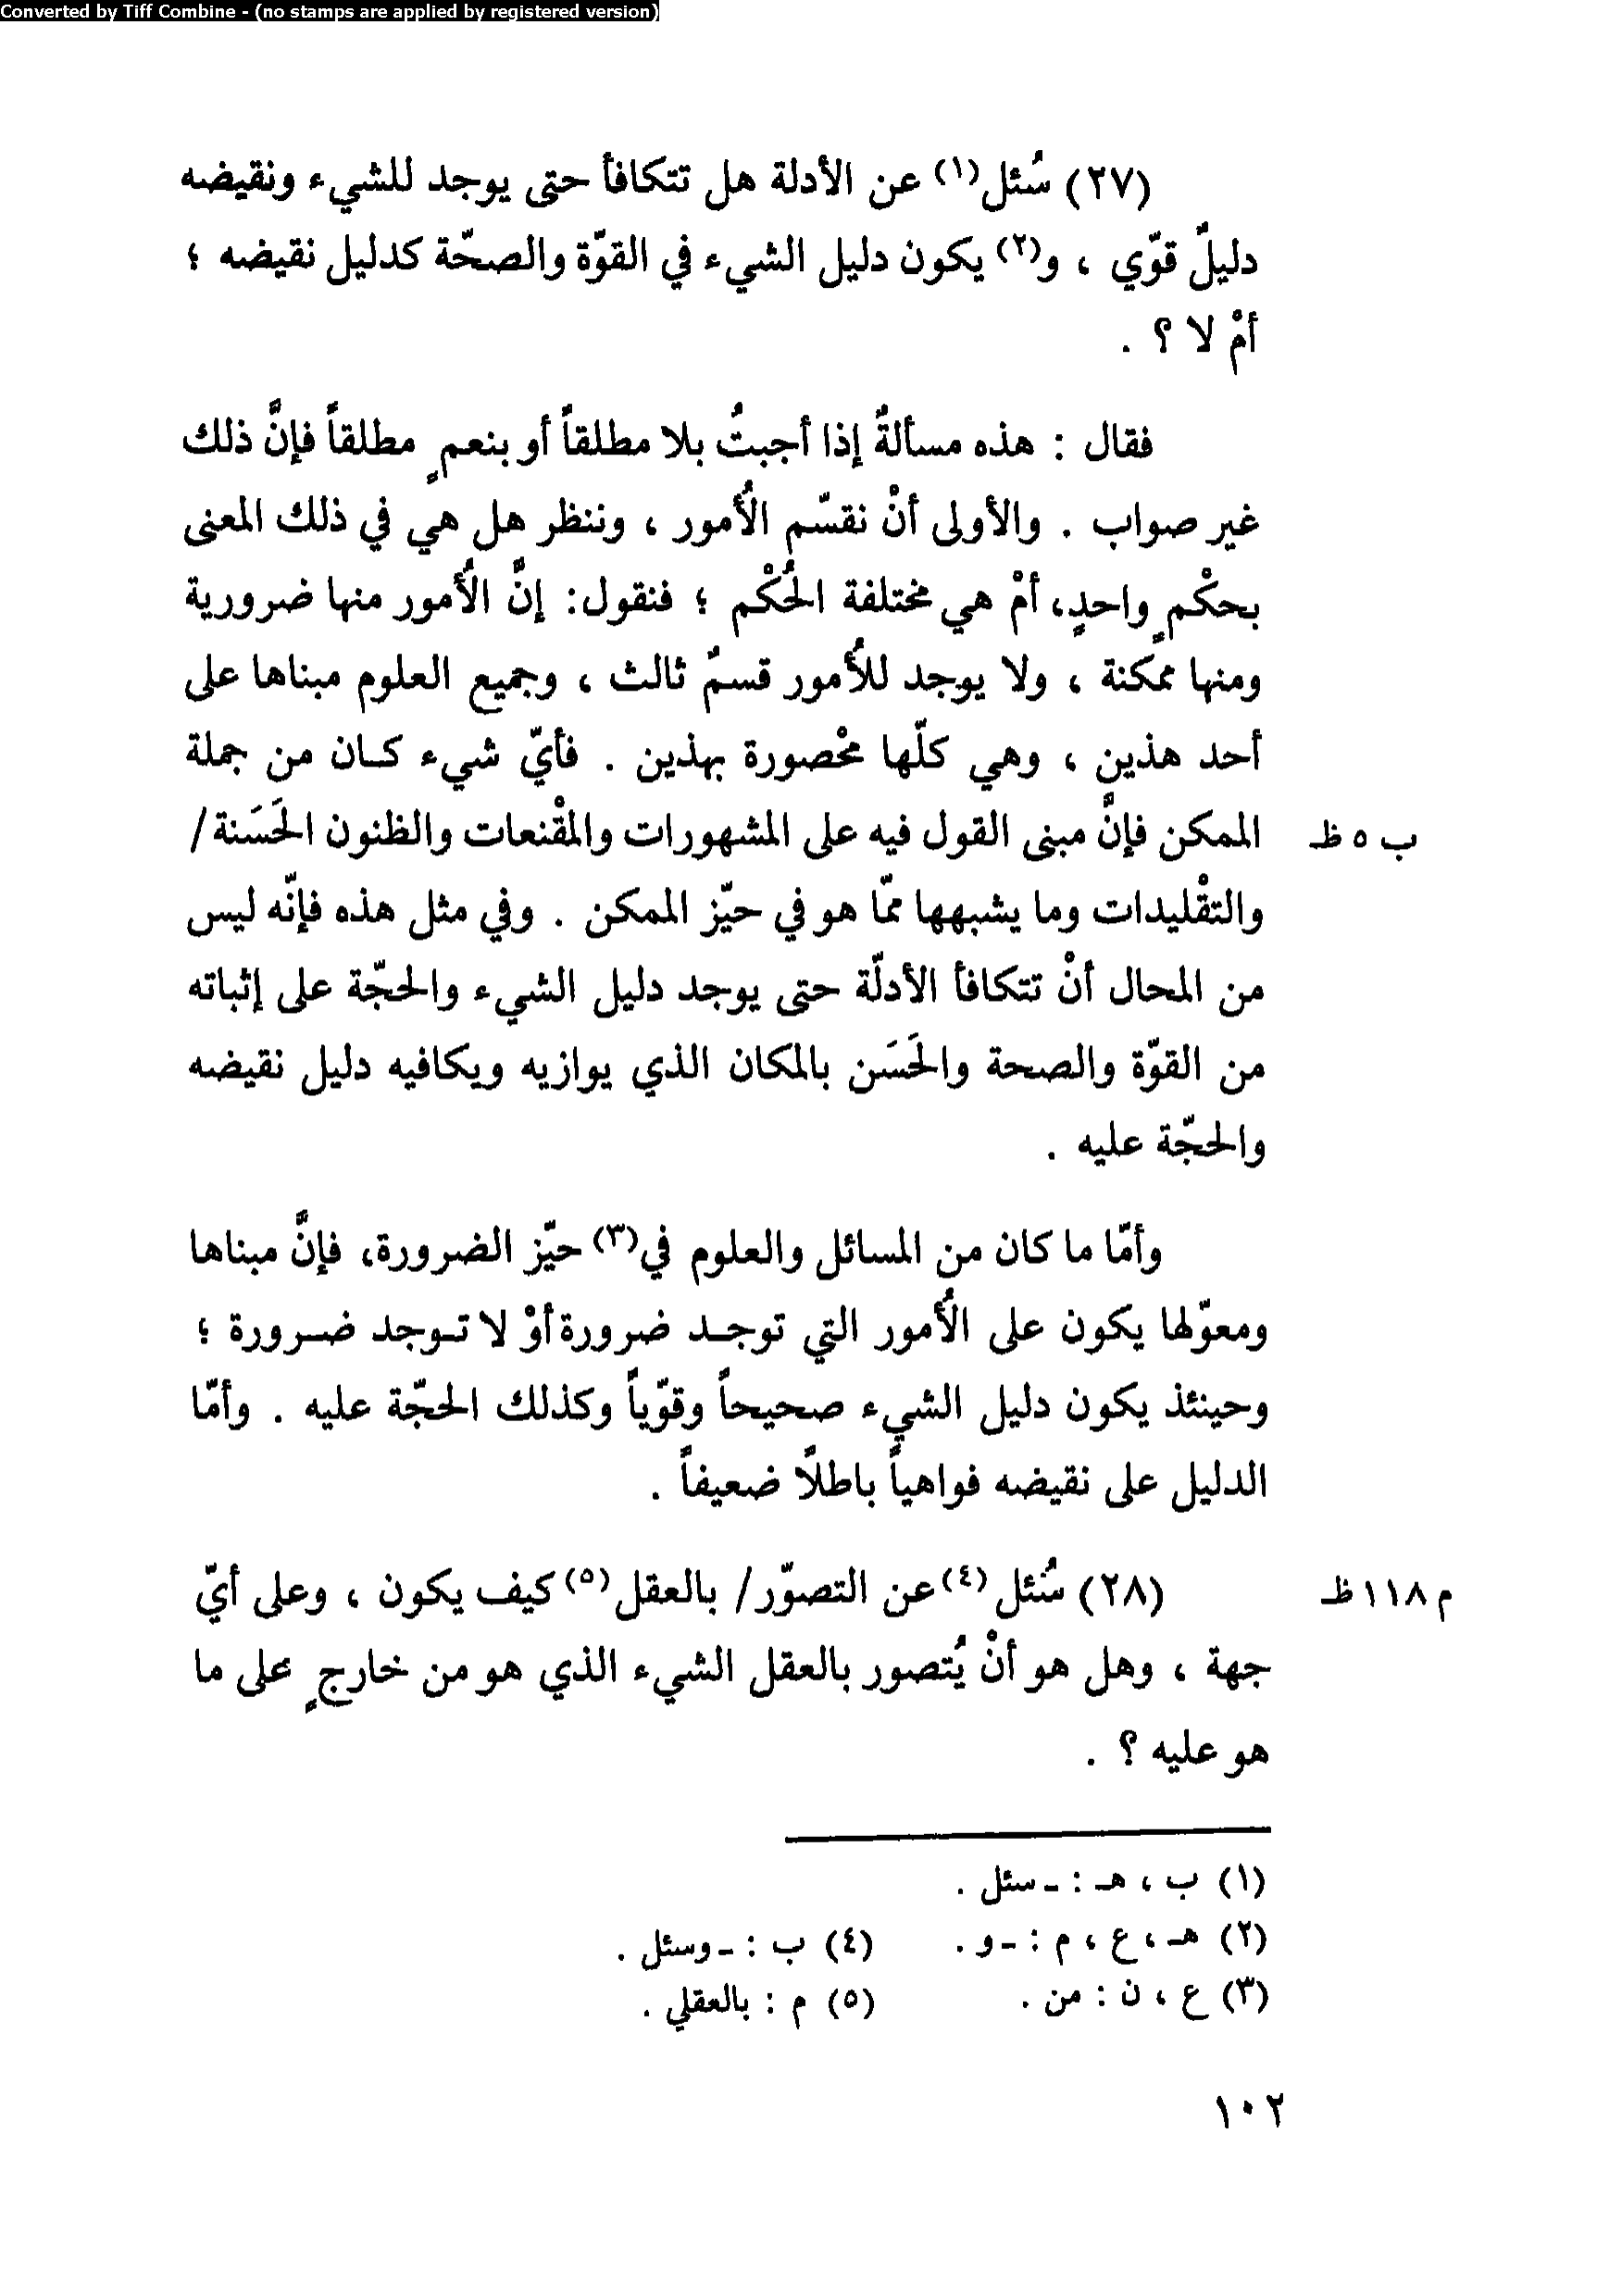 Converted by Tiff Combine - (no stamps are applied by registered version)
(٢٧) سُئل(١) عن الأدلة هل تتكافأ حتى يوجد للشيء ونقيضه
دليلٌ قوّي ، و(٢) يكون دليل الشيء في القوّة والصحّة كدليل نقيضه ؛
أمْ لا ؟ .
فقال : هذه مسألةٌ إذا أجبتُ بلا مطلقاً أو بنعمٍ مطلقاً فإنَّ ذلك
غير صواب . والأولى أنْ نقسّم الأُمور ، وننظر هل هي في ذلك المعنى
بحكْمٍ واحدٍ، أمْ هي مختلفة الحُكْم ؛ فنقول: إنَّ الأُمور منها ضرورية
ومنها ممكنة ، ولا يوجد للأُمور قسمٌ ثالث ، وجميع العلوم مبناها على
أحد هذين ، وهي كلّها محْصورة بهذين . فأيّ شيء كان من جملة
الممكن فإنَّ مبنى القول فيه على المشهورات والمقْنعات والظنون الحَسَنة/
ب ٥ ظ
والتقْليدات وما يشبهها ممّا هو في حيّز الممكن . وفي مثل هذه فإنّه ليس
من المحال أنْ تتكافأ الأدلّة حتى يوجد دليل الشيء والحجّة على إثباته
من القوّة والصحة والحَسَن بالمكان الذي يوازيه ويكافيه دليل نقيضه
والحجّة عليه .
وأمّا ما كان من المسائل والعلوم في(٣) حيّز الضرورة، فإنَّ مبناها
ومعوّلها يكون على الأُمور التي توجد ضرورة أوْ لا توجد ضرورة ؛
وحينئذ يكون دليل الشيء صحيحاً وقوّياً وكذلك الحجّة عليه . وأمّا
الدليل على نقيضه فواهياً باطلًا ضعيفاً .
(٢٨) سُئل(٤) عن التصوّر/ بالعقل(٥) كيف يكون ، وعلى أيّ
م ١١٨ ظ
جهة ، وهل هو أنْ يُتصور بالعقل الشيء الذي هو من خارجٍ على ما
هو عليه ؟ .
(١) ب ، هـ : ـ سئل .
(٢) هـ ، ع ، م : ـ و .
(٣) ع ، ن : من .
(٤) ب : ـ وسئل .
(٥) م : بالعقلي .
١٠٢